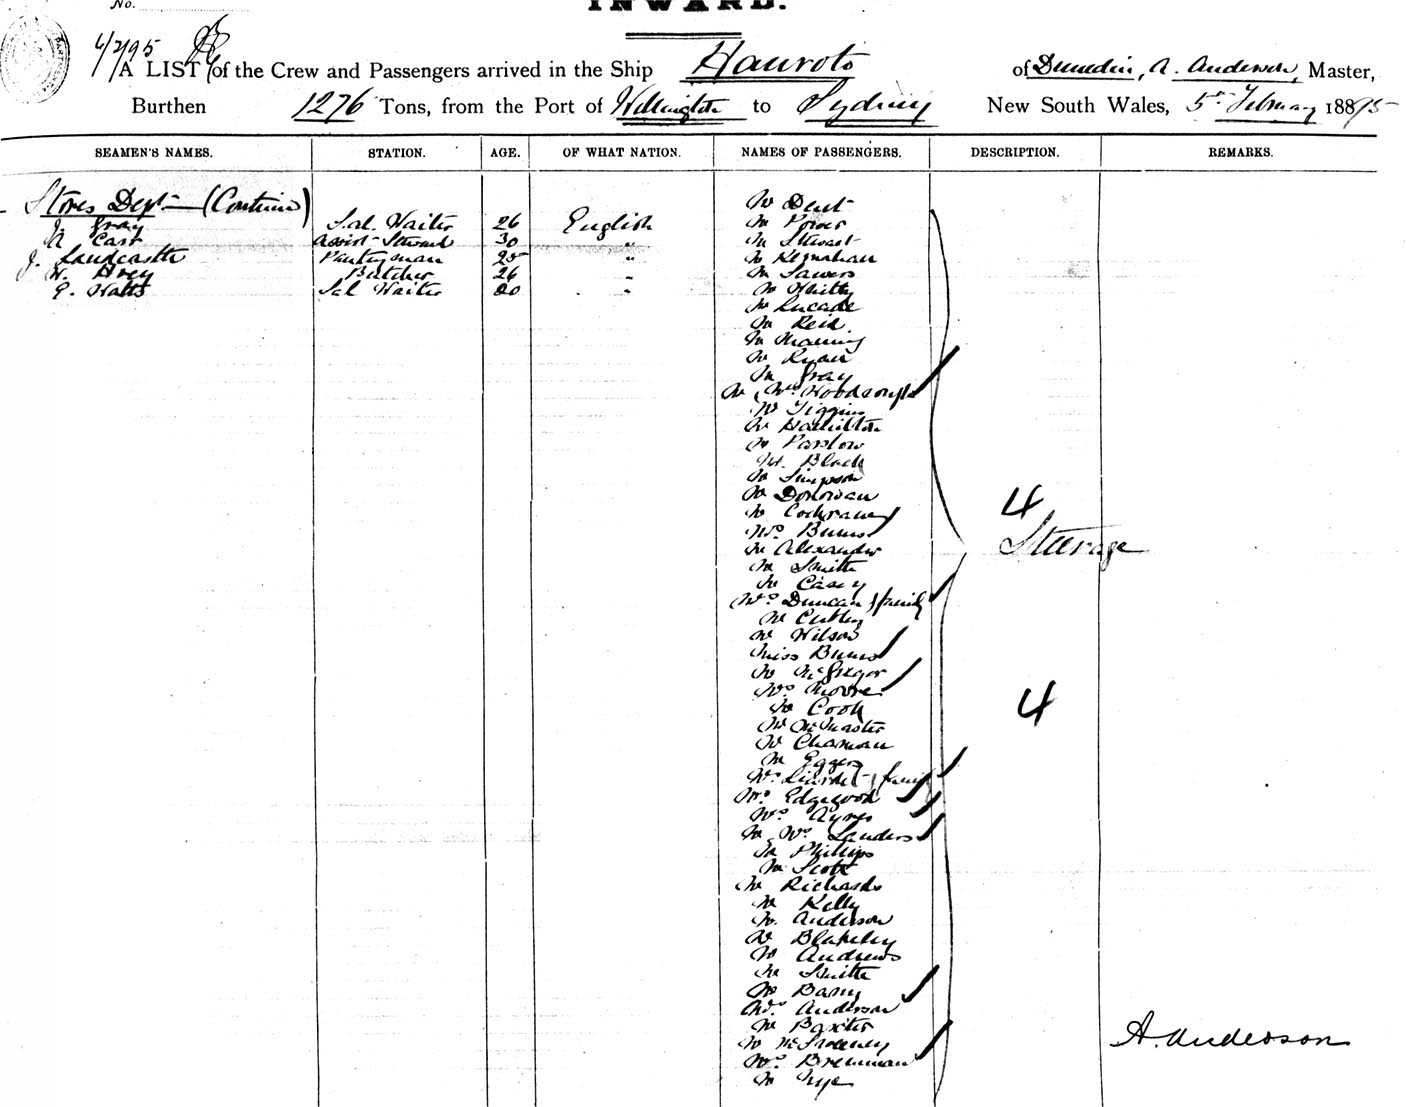 No.
INWARD.
4/2/95
A LIST of the Crew and Passengers arrived in the Ship Hauroto of Dunedin, A. Anderson, Master,
Burthen 1276 Tons, from the Port of Wellington to Sydney New South Wales, 5th February 1895
SEAMEN'S NAMES. STATION. AGE. OF WHAT NATION. NAMES OF PASSENGERS. DESCRIPTION. REMARKS.
Stores Dept (Continued)
Gray Sal. Waiter 26 English
Cast Assist Steward 30 "
J. Landcastle Pantryman 25 "
H. Avey Butcher 26 "
E. Watts Sal Waiter 20 "
Mr Dent
Mr Power
Mr Stewart
Mr Kernahan
Mr Sawers
Mr Whitty
Mr Lucade
Mr Reid
Mr Manning
Mr Ryan
Mr Gray
Mr Mrs
Mr Tiggins
Mr Hamilton
Mr Parslow
Mr Black
Mr Simpson
Mr Donovan
Mr Cochrane
Mrs Burns
Mr Alexander
Mr Smith
Mr Casey
Mrs Duncan & family
Mr Cutley
Mr Wilson
Miss Burns
Mr McGregor
Mrs Moore
Mr Cook
Mr McMaster
Mr Charman
Mr Eggers
Mrs Liardet & family
Mrs Edgewood
Mrs Ayres
Mr Mrs Landers
Mr Phillips
Mr Scott
Mr Richards
Mr Kelly
Mr Anderson
Mr Blakeley
Mr Andrews
Mr Smith
Mr Barry
Mrs Anderson
Mr Baxter
Mr McSweeney
Mrs Brennnan
Mr Nye
4
Steerage
4
A. Anderson